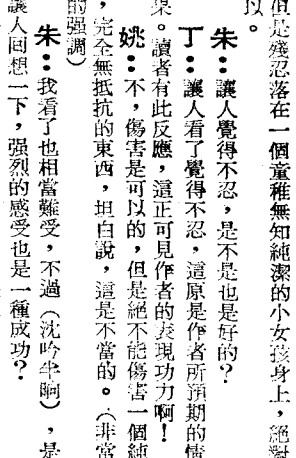 但是殘忍落在一個童稚無知純潔的小女孩身上，絕對
以。
朱：讓人覺得不忍，是不是也是好的？
丁：讓人看了覺得不忍，這原是作者所預期的情
果。讀者有此反應，這正可見作者的表現功力啊！
姚：不，傷害是可以的，但是絕不能傷害一個純
，完全無抵抗的東西，坦白說，這是不當的。（非常
的强調）
朱：我看了也相當難受，不過（沈吟半晌），是
讓人回想一下，强烈的感受也是一種成功？